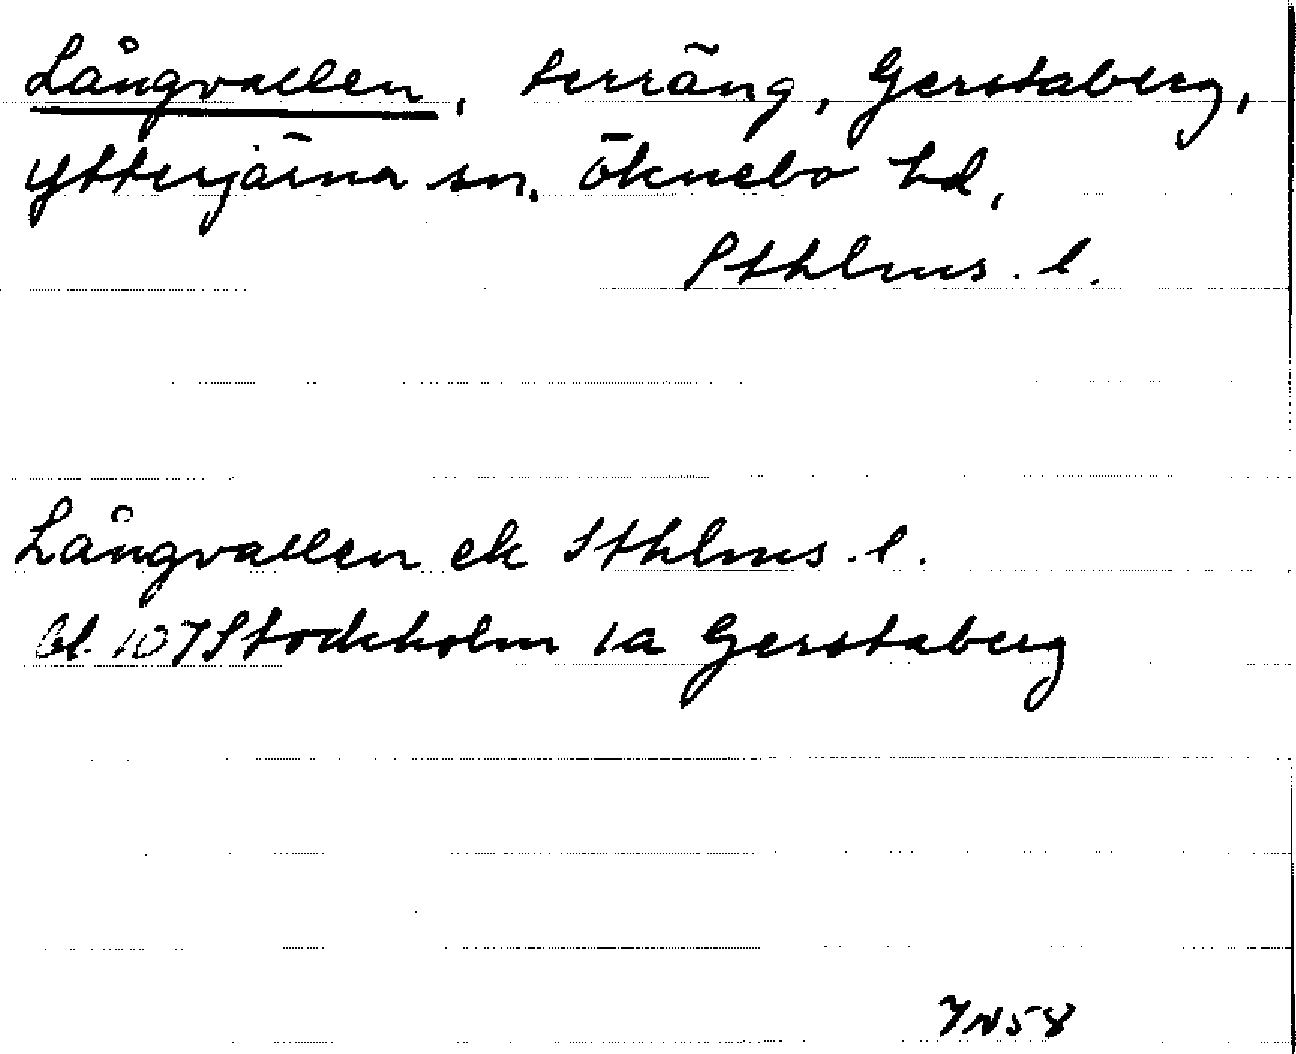 Långvallen, terräng, Gerstaberg,
Ytterjärna sn. Öknebo hd,
Sthlms. l.
Långvallen ek Sthlms. l.
bl. 107 Stockholm 1a Gerstaberg
7N58